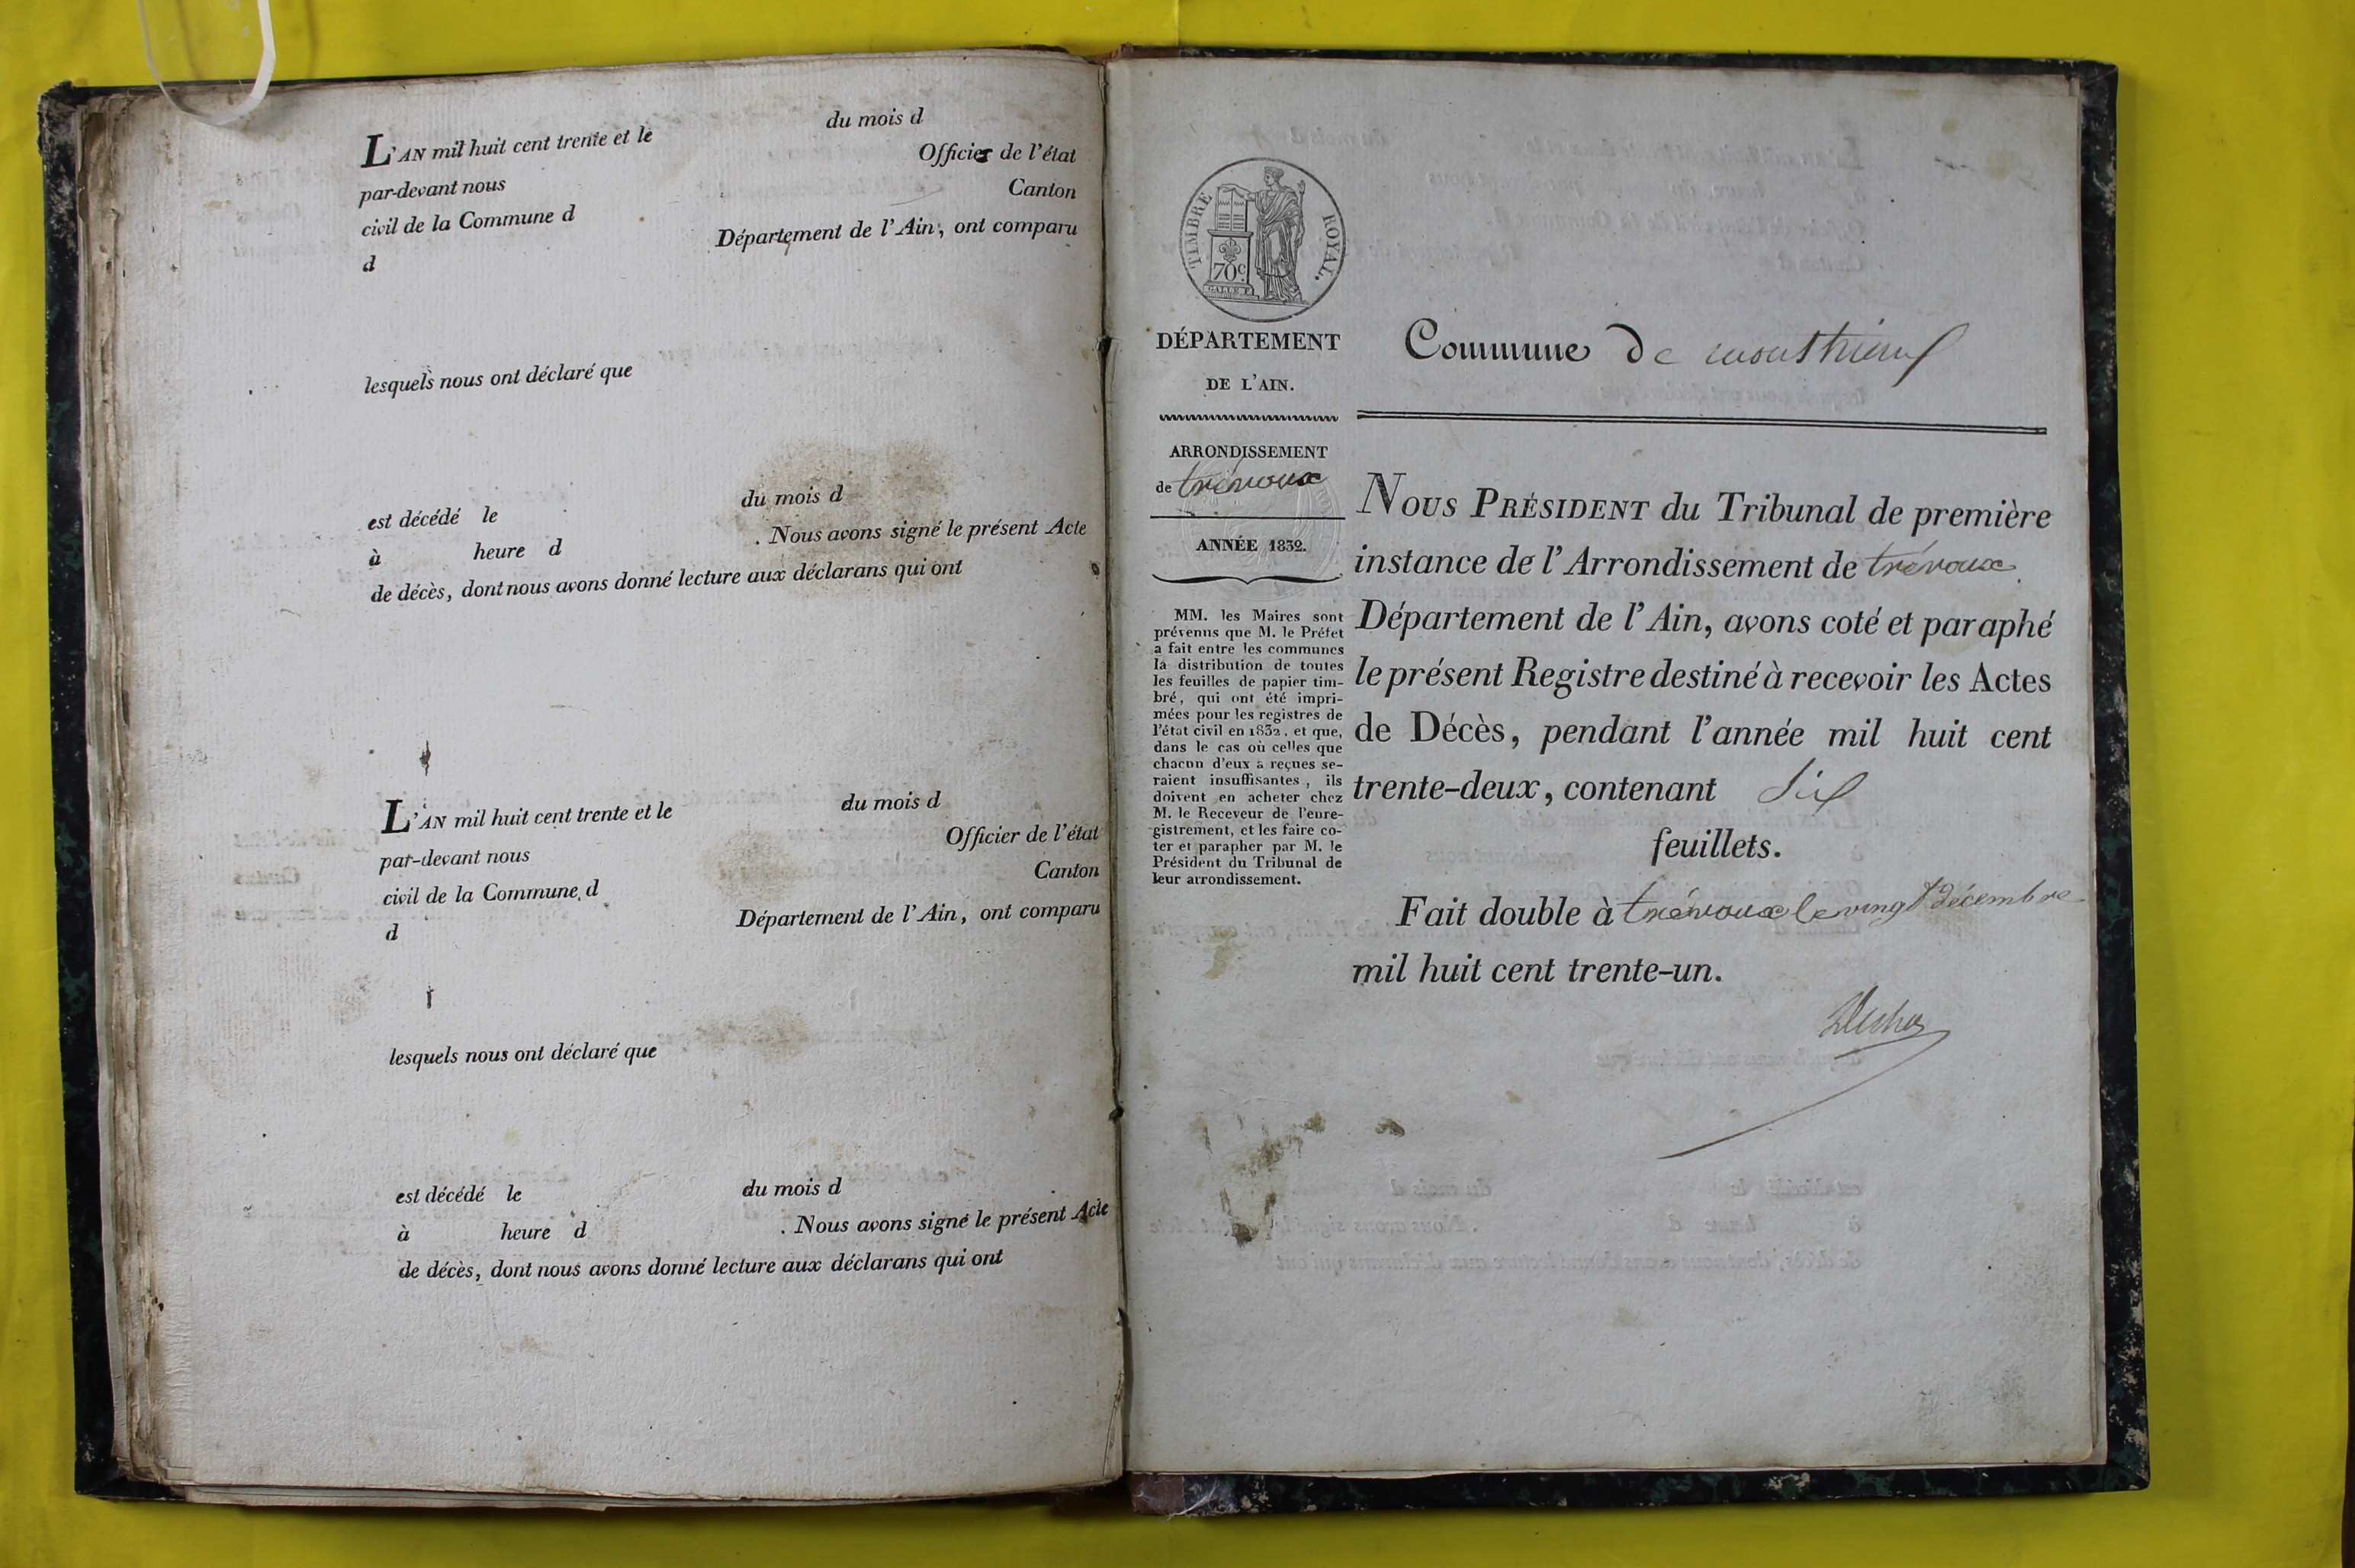 L'AN mil huit cent trente et le du mois d
par-devant nous Officier de l'état
civil de la Commune d Canton
d Département de l'Ain, ont comparu
lesquels nous ont déclaré que
est décédé le du mois d
à heure d . Nous avons signé le présent Acte
de décès, dont nous avons donné lecture aux déclarans qui ont
L'AN mil huit cent trente et le du mois d
par-devant nous Officier de l'état
civil de la Commune d Canton
d Département de l'Ain, ont comparu
lesquels nous ont déclaré que
est décédé le du mois d
à heure d . Nous avons signé le présent Acte
de décès, dont nous avons donné lecture aux déclarans qui ont
TIMBRE ROYAL.
70c.
DÉPARTEMENT
DE L'AIN.
ARRONDISSEMENT
de trévoux
ANNÉE 1832.
MM. les Maires sont
prévenus que M. le Préfet
a fait entre les communes
la distribution de toutes
les feuilles de papier tim-
bré, qui ont été impri-
mées pour les registres de
l'état civil en 1832, et que,
dans le cas où celles que
chacun d'eux a reçues se-
raient insuffisantes, ils
doivent en acheter chez
M. le Receveur de l'enre-
gistrement, et les faire co-
ter et parapher par M. le
Président du Tribunal de
leur arrondissement.
Commune de
NOUS PRÉSIDENT du Tribunal de première
instance de l'Arrondissement de trévoux
Département de l'Ain, avons coté et paraphé
le présent Registre destiné à recevoir les Actes
de Décès, pendant l'année mil huit cent
trente-deux, contenant Six
feuillets.
Fait double à trévoux le vingt décembre
mil huit cent trente-un.